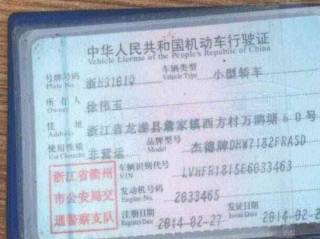 中华人民共和国机动车行驶证
Vehicle License of the People's Republic of China
号牌号码 Plate No. 浙H3181Q 车辆类型 Vehicle Type 小型轿车
所有人 Owner 徐伟玉
住址 Address 浙江省龙游县詹家镇西方村万鹃塘60号
使用性质 Use Character 非营运 品牌型号 Model 杰德牌DHW7182FRASD
浙江省衢州 车辆识别代号 VIN LVHFR1815E6033463
市公安局交 发动机号码 Engine No. 2033465
通警察支队 注册日期 Register Date 2014-02-27 发证日期 Issue Date 2014-02-27